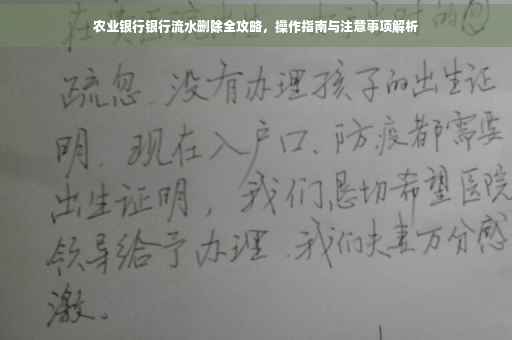 农业银行银行流水删除全攻略，操作指南与注意事项解析
疏忽、没有办理孩子的出生证
明、现在入户口、防疫都需要
出生证明，我们恳切希望医院
领导给予办理、我们夫妻万分感
激。